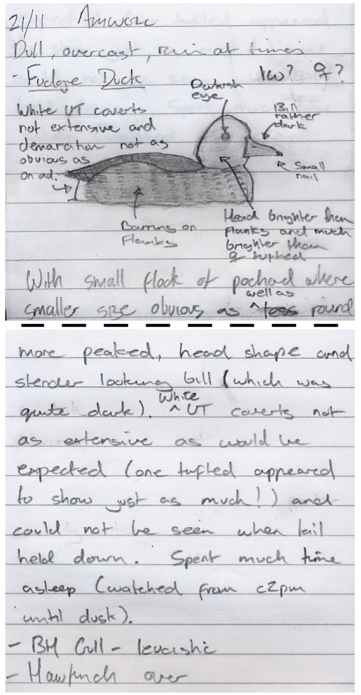 21/11 Amwell
Dull, overcast, rain at times
- Fudge Duck
1w? ♀?
Darkish eye
Bill rather dark
Small nail
White UT coverts
not extensive and
demarcation not as
obvious as
on ad.
Barring on
Flanks
Head brighter than
flanks and much
brighter than
♀ tufted
With small flock of pochard where
smaller size obvious as well as less round
more peaked, head shape and
slender looking bill (which was
quite dark). White UT coverts not
as extensive as would be
expected (one tufted appeared
to show just as much!) and
could not be seen when tail
held down. Spent much time
asleep (watched from c2pm
until dusk).
- BH Gull - leucistic
- Hawfinch over